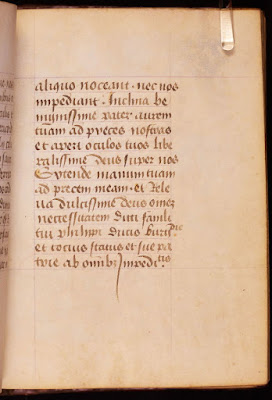 aliquo noceant. nec nos
impediant. Inclina be
nignissime pater aurem
tuam ad preces nostras
et aperi oculos tuos libe
ralissime deus super nos
Extende manum tuam
ad precem meam. et rele
va dulcissime deus omnem
necessitatem dicti famuli
tui philippi ducis burg.die
et totius status et sue pa
trie ab omnibus impedi.tis